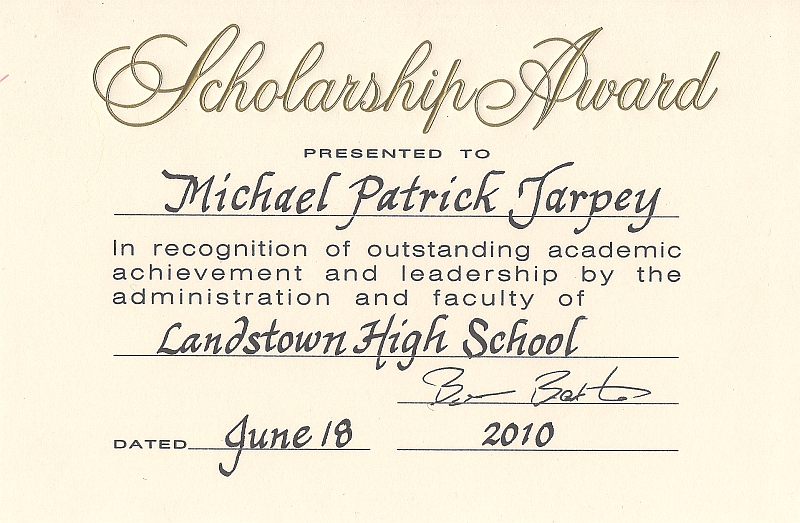 Scholarship Award
PRESENTED TO
Michael Patrick Tarpey
In recognition of outstanding academic
achievement and leadership by the
administration and faculty of
Landstown High School
DATED June 18 2010